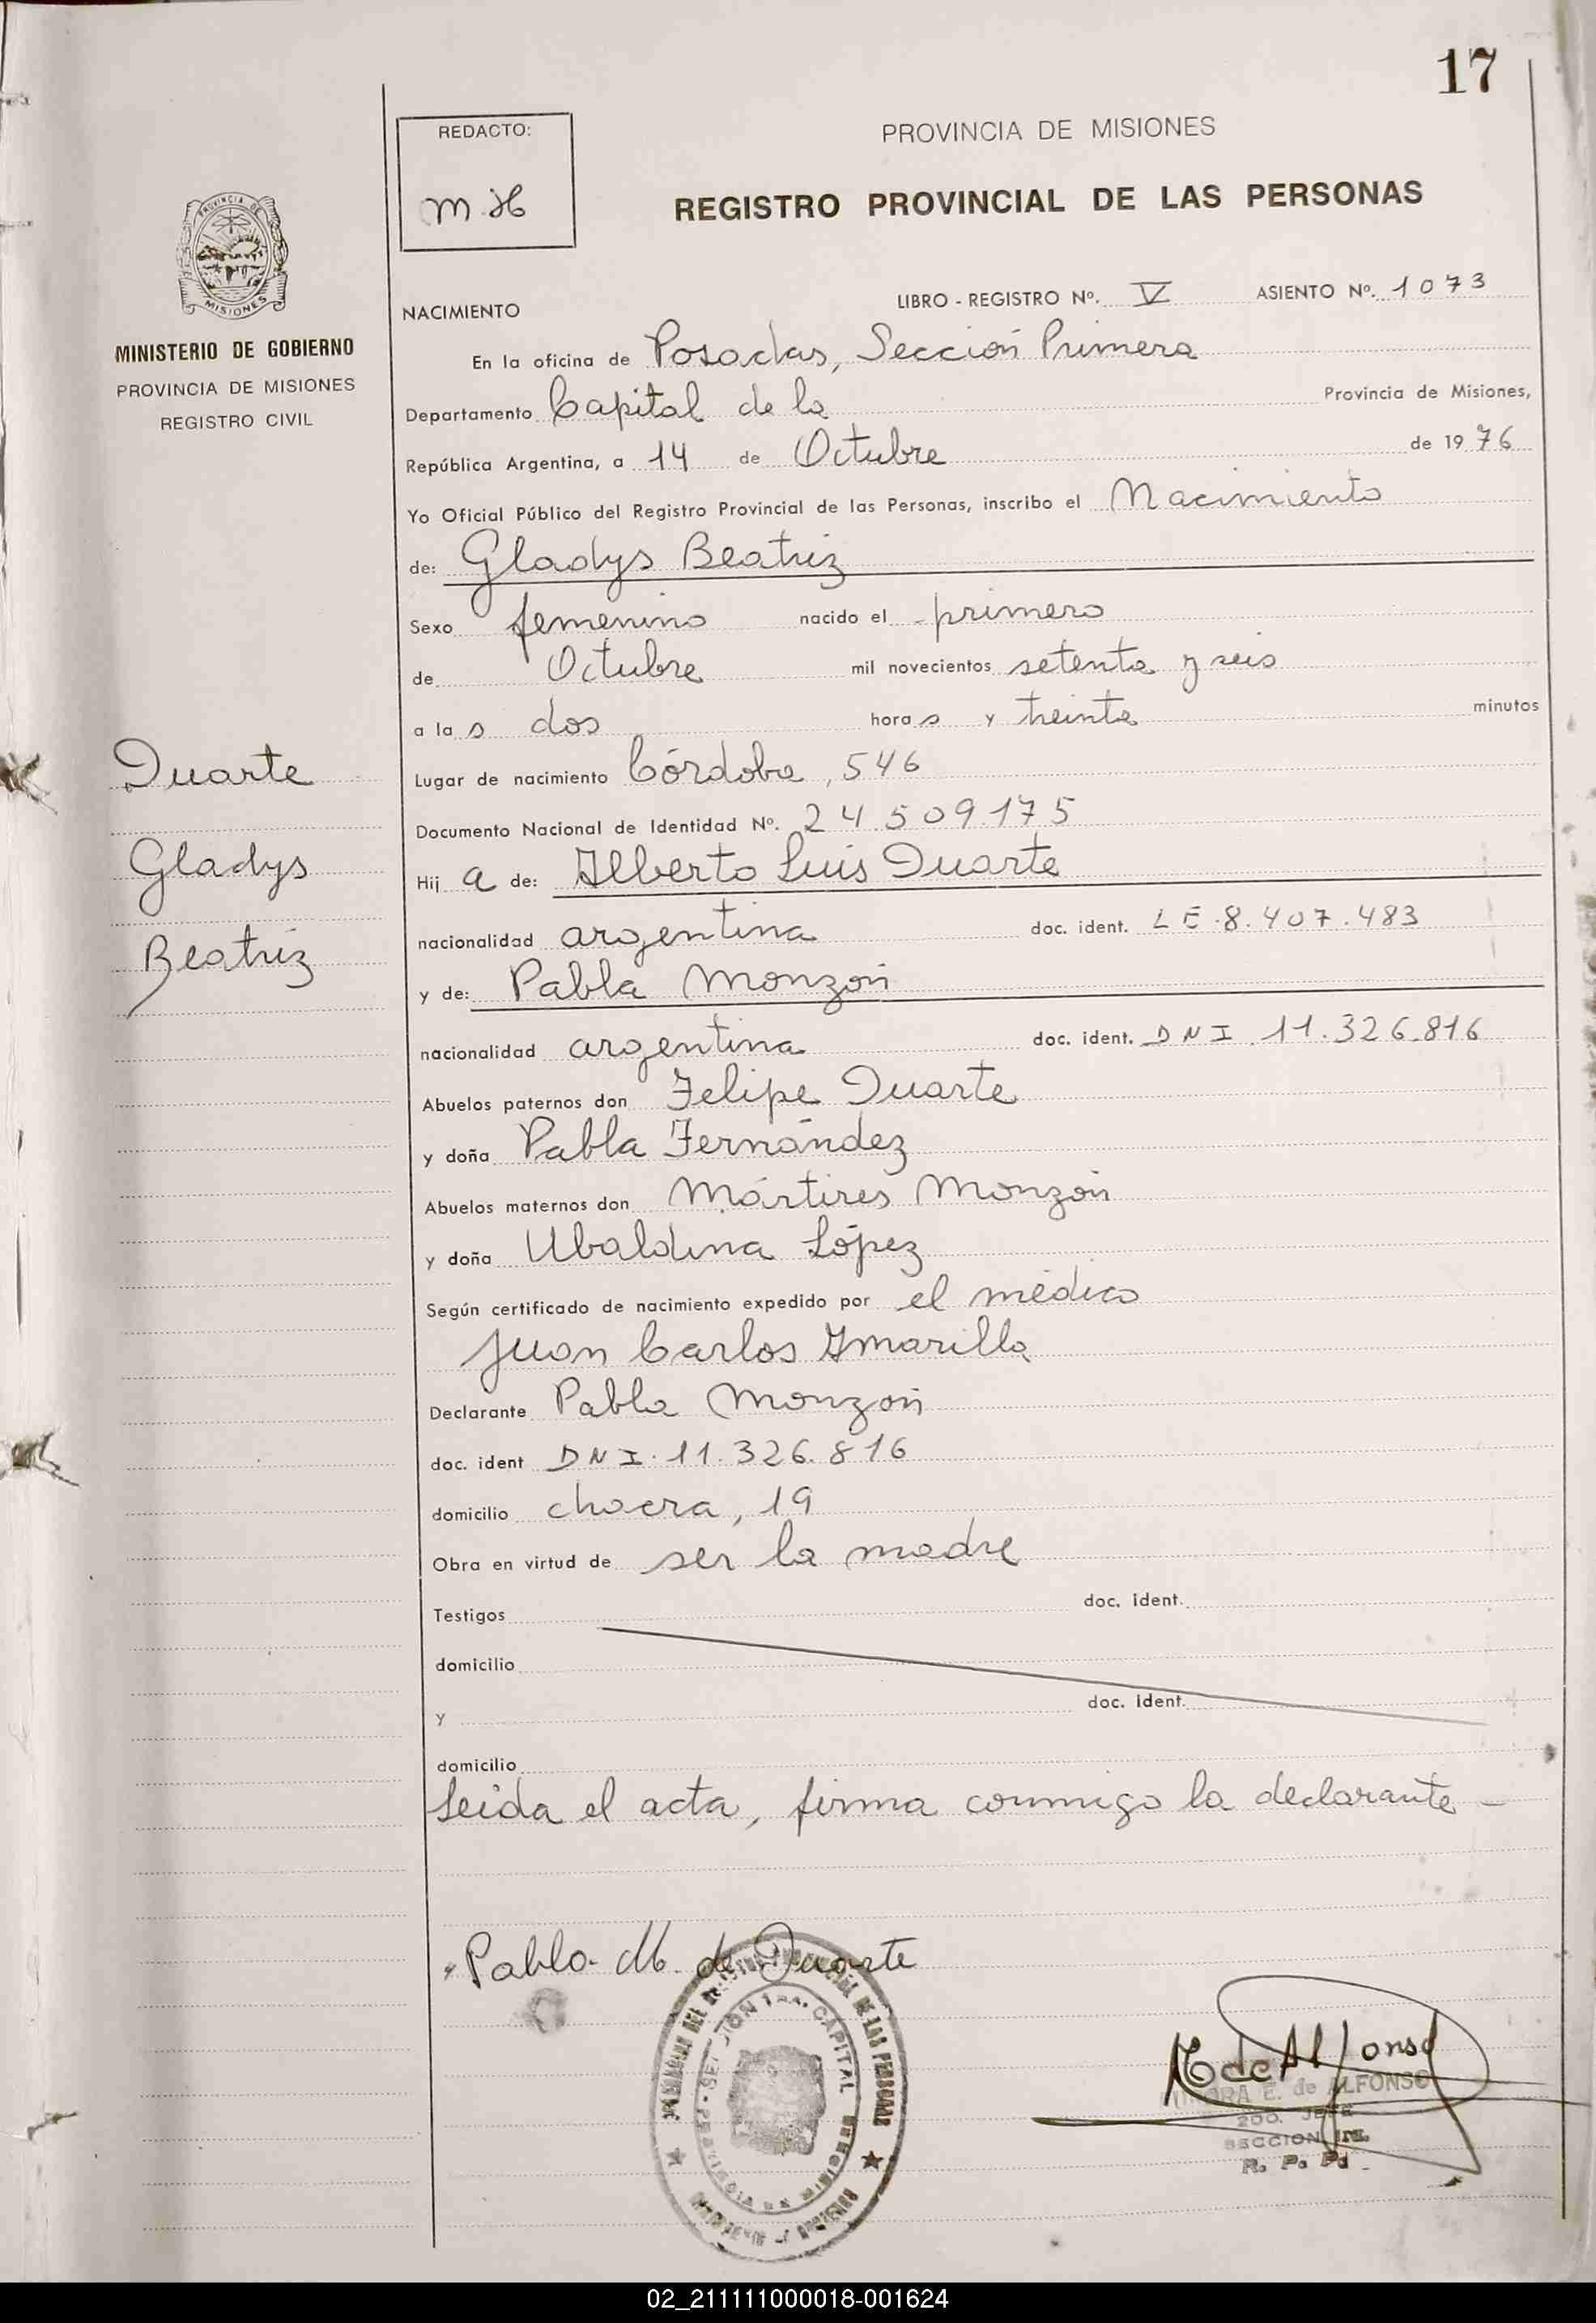 17
REDACTO:
M.H
PROVINCIA DE MISIONES
REGISTRO PROVINCIAL DE LAS PERSONAS
PROVINCIA DE
MISIONES
MINISTERIO DE GOBIERNO
PROVINCIA DE MISIONES
REGISTRO CIVIL
NACIMIENTO LIBRO - REGISTRO Nº. V ASIENTO Nº. 1073
En la oficina de Posadas, Sección Primera
Departamento Capital de la Provincia de Misiones,
República Argentina, a 14 de Octubre de 1976
Yo Oficial Público del Registro Provincial de las Personas, inscribo el Nacimiento
de: Gladys Beatriz
Sexo femenino nacido el primero
de Octubre mil novecientos setenta y seis
a la s dos hora s y treinta minutos
Duarte
Gladys
Beatriz
Lugar de nacimiento Córdoba, 546
Documento Nacional de Identidad Nº. 24.509.175
Hij a de: Alberto Luis Duarte
nacionalidad argentina doc. ident. LE.8.407.483
y de: Pabla Monzón
nacionalidad argentina doc. ident. DNI.11.326.816
Abuelos paternos don Felipe Duarte
y doña Pabla Fernández
Abuelos maternos don Mártires Monzón
y doña Ubaldina López
Según certificado de nacimiento expedido por el médico
Juan Carlos Amarilla
Declarante Pabla Monzón
doc. ident DNI.11.326.816
domicilio chacra, 19
Obra en virtud de ser la madre
Testigos doc. ident.
domicilio
y doc. ident.
domicilio
Leida el acta, firma conmigo la declarante -
Pabla M. de Duarte
DE LAS PERSONAS
CAPITAL
de Alfonso
E. de ALFONSO
2DO. JEFE
SECCION 1ra.
R. P. P.
02_211111000018-001624